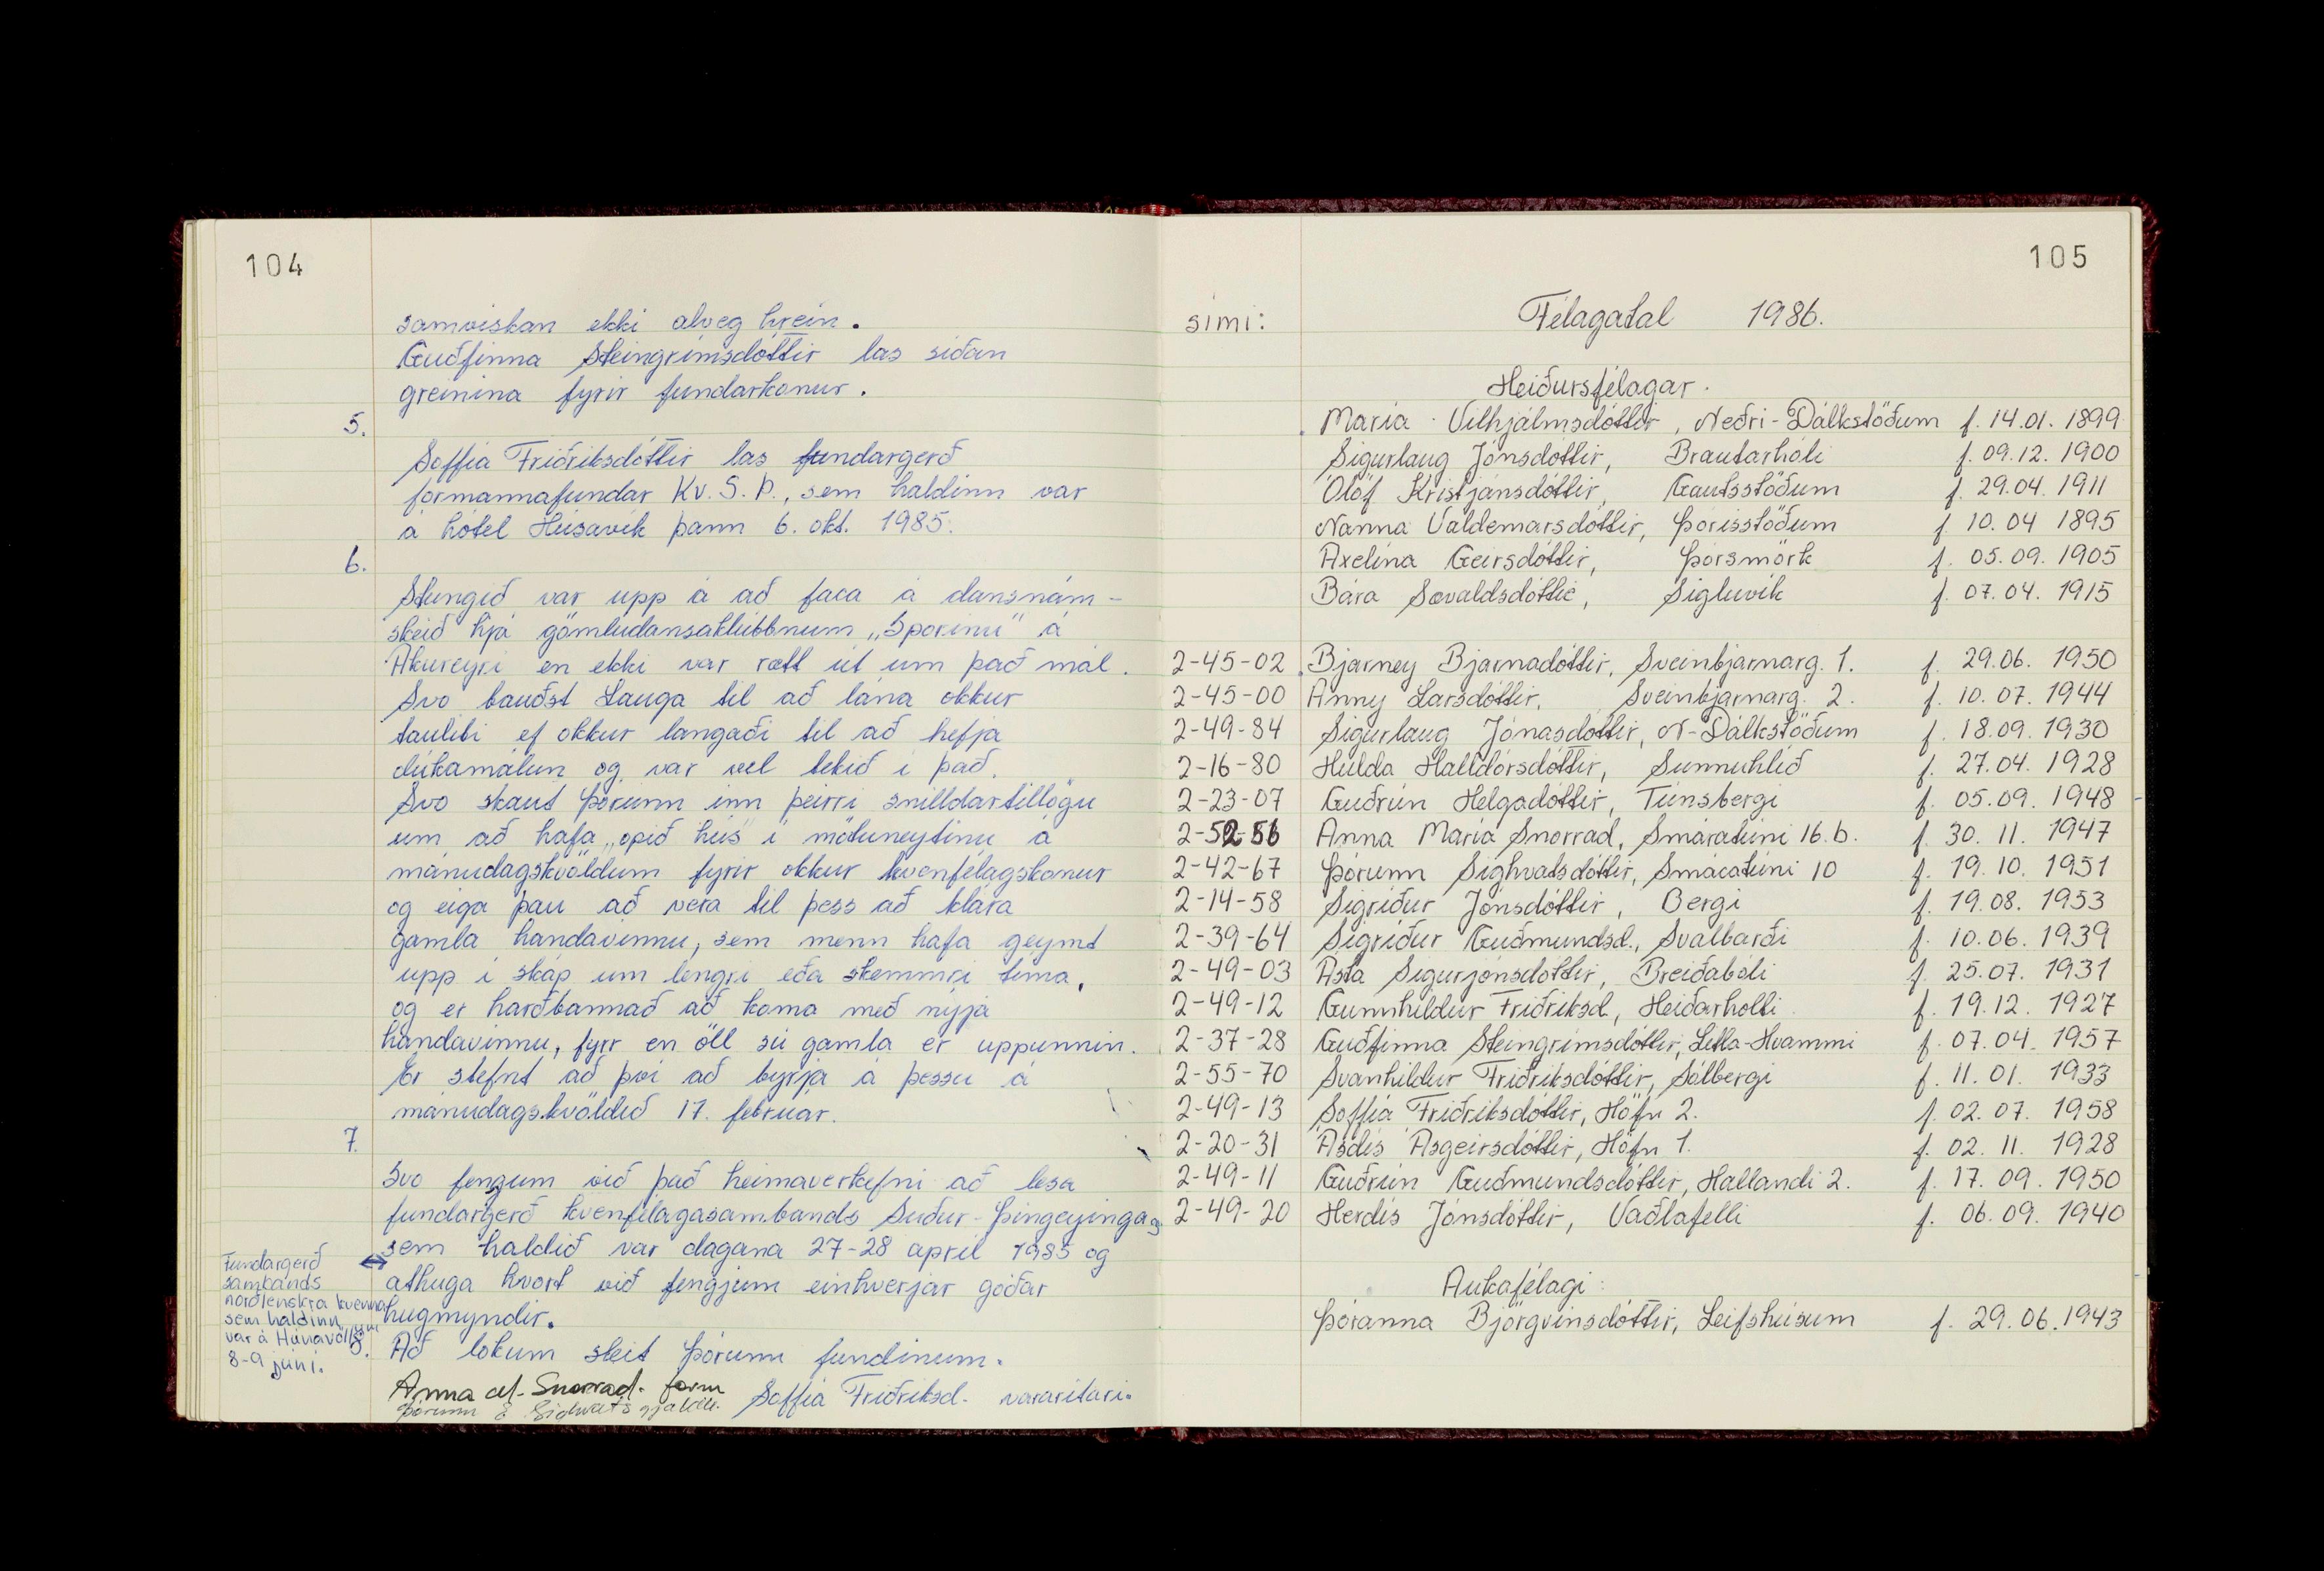 104
samviskan ekki alveg hrein.
Guðfinna Steingrímsdóttir las síðan
greinina fyrir fundarkonur.
5.
Soffía Friðriksdóttir las fundargerð
formannafundar Kv.S.Þ., sem haldinn var
á hótel Húsavík þann 6. okt. 1985.
6.
Stungið var upp á að fara á dansnám-
skeið hjá gömludansaklúbbnum „Sporinu" á
Akureyri en ekki var rætt út um það mál.
Svo bauðst Lauga til að lána okkur
tauliti ef okkur langaði til að hefja
dúkamálun og var vel tekið í það.
Svo skaut Þórunn inn þeirri snilldartillögu
um að hafa „opið hús" í mötuneytinu á
mánudagskvöldum fyrir okkur kvenfélagskonur
og eiga þau að vera til þess að klára
gamla handavinnu, sem menn hafa geymt
upp í skáp um lengri eða skemmri tíma,
og er harðbannað að koma með nýja
handavinnu, fyrr en öll sú gamla er uppunnin.
Er stefnt að því að byrja á þessu á
mánudagskvöldið 17. febrúar.
7.
Svo fengum við það heimaverkefni að lesa
fundargerð kvenfélagasambands Suður-Þingeyinga og
sem haldið var dagana 27-28 apríl 1985 og
athuga hvort við fengjum einhverjar góðar
hugmyndir.
Fundargerð
sambands
norðlenskra kvenna
sem haldinn
var á Húnavöllum
8-9 júní.
8.
Að lokum sleit Þórunn fundinum.
Anna M. Snorrad. form
Soffía Friðriksd. vararitari.
Þórunn
105
sími:
Félagatal 1986.
Heiðursfélagar.
María Vilhjálmsdóttir, Neðri-Dálkstöðum f. 14.01. 1899
Sigurlaug Jónsdóttir, Brautarhóli f. 09.12. 1900
Ólöf Kristjánsdóttir, Gautsstöðum f. 29.04. 1911
Nanna Valdemarsdóttir, Þórisstöðum f. 10.04 1895
Axelína Geirsdóttir, Þórsmörk f. 05.09. 1905
Bára Sævaldsdóttir, Sigluvík f. 07.04. 1915
2-45-02 Bjarney Bjarnadóttir, Sveinbjarnarg. 1. f. 29.06. 1950
2-45-00 Anny Larsdóttir, Sveinbjarnarg. 2. f. 10.07. 1944
2-49-84 Sigurlaug Jónasdóttir, N-Dálkstöðum f. 18.09. 1930
2-16-80 Hulda Halldórsdóttir, Sunnuhlíð f. 27.04. 1928
2-23-07 Guðrún Helgadóttir, Túnsbergi f. 05.09. 1948
2-52-56 Anna María Snorrad, Smáratúni 16.b. f. 30. 11. 1947
2-42-67 Þórunn Sighvatsdóttir, Smáratúni 10 f. 19.10. 1951
2-14-58 Sigríður Jónsdóttir, Bergi f. 19.08. 1953
2-39-64 Sigríður Guðmundsd., Svalbarði f. 10.06. 1939
2-49-03 Ásta Sigurjónsdóttir, Breiðabóli f. 25.07. 1931
2-49-12 Gunnhildur Friðriksd., Heiðarholti f. 19.12. 1927
2-37-28 Guðfinna Steingrímsdóttir, Litla-Hvammi f. 07.04. 1957
2-55-70 Svanhildur Friðriksdóttir, Sólbergi f. 11.01. 1933
2-49-13 Soffía Friðriksdóttir, Höfn 2. f. 02.07. 1958
2-20-31 Ásdís Ásgeirsdóttir, Höfn 1. f. 02. 11. 1928
2-49-11 Guðrún Guðmundsdóttir, Hallandi 2. f. 17. 09. 1950
2-49-20 Herdís Jónsdóttir, Vaðlafelli f. 06.09. 1940
Aukafélagi:
Þóranna Björgvinsdóttir, Leifshúsum f. 29.06.1943